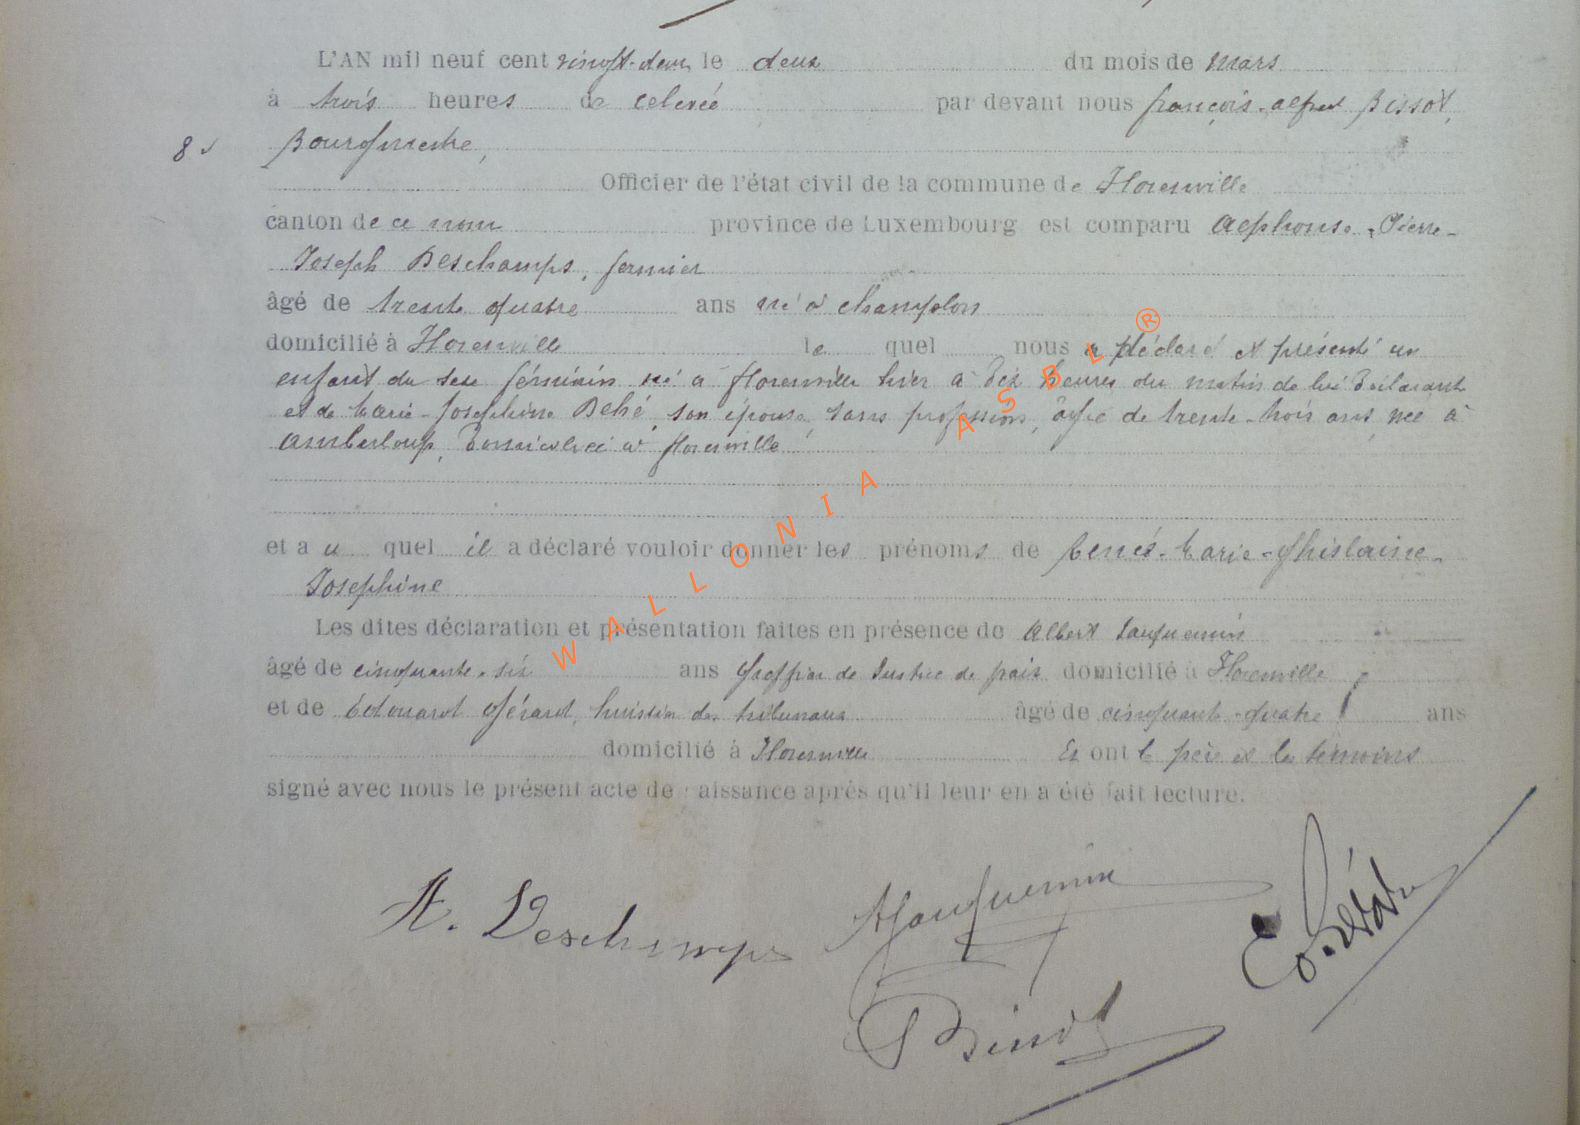 L'AN mil neuf cent vingt-deux le deux du mois de mars
à trois heures de relevée par devant nous françois-alfred Bissot,
8
Bourgmestre,
Officier de l'état civil de la commune de Florenville
canton de ce nom province de Luxembourg est comparu Alphonse-Pierre-
Joseph Deschamps, fermier
âgé de trente quatre ans né à champlon
domicilié à Florenville le quel nous a déclaré et présenté un
enfant du sexe féminin né à florenville hier à dix heures du matin de lui déclarant
et de Marie-Josephine Dehé, son épouse, sans profession, âgée de trente-trois ans, née à
amberloup, domiciliée à florenville
et a u quel il a déclaré vouloir donner les prénoms de Marie-Ghislaine-
Josephine
Les dites déclaration et présentation faites en présence de Albert Jauquemin
âgé de cinquante-six ans Greffier de Justice de paix domicilié à Florenville
et de Edouard Gérard, huissier des tribunaux âgé de cinquante-quatre ans
domicilié à Florenville Et ont le père et les témoins
signé avec nous le présent acte de naissance après qu'il leur en a été fait lecture.
A. Deschamps AJauquemin Ed. Gérard
Bissot
WALLONIA ASBL ®